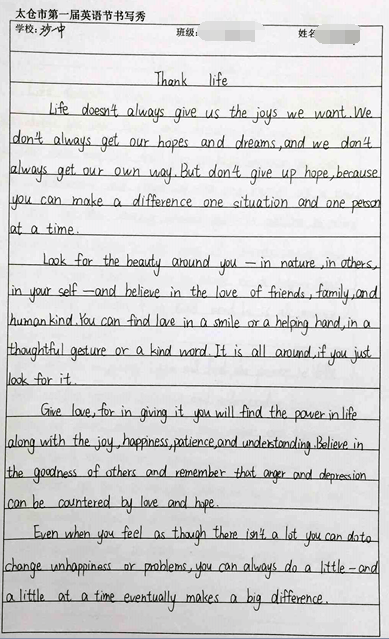 太仓市第一届英语节书写秀
学校: 沙一中 班级: 姓名
Thank life
Life doesn't always give us the joys we want. We
don't always get our hopes and dreams, and we don't
always get our own way. But don't give up hope, because
you can make a difference one situation and one person
at a time.
Look for the beauty around you — in nature, in others,
in your self — and believe in the love of friends, family, and
humankind. You can find love in a smile or a helping hand, in a
thoughtful gesture or a kind word. It is all around, if you just
look for it.
Give love, for in giving it you will find the power in life
along with the joy, happiness, patience, and understanding. Believe in
the goodness of others and remember that anger and depression
can be countered by love and hope.
Even when you feel as though there isn't a lot you can do to
change unhappiness or problems, you can always do a little — and
a little at a time eventually makes a big difference.